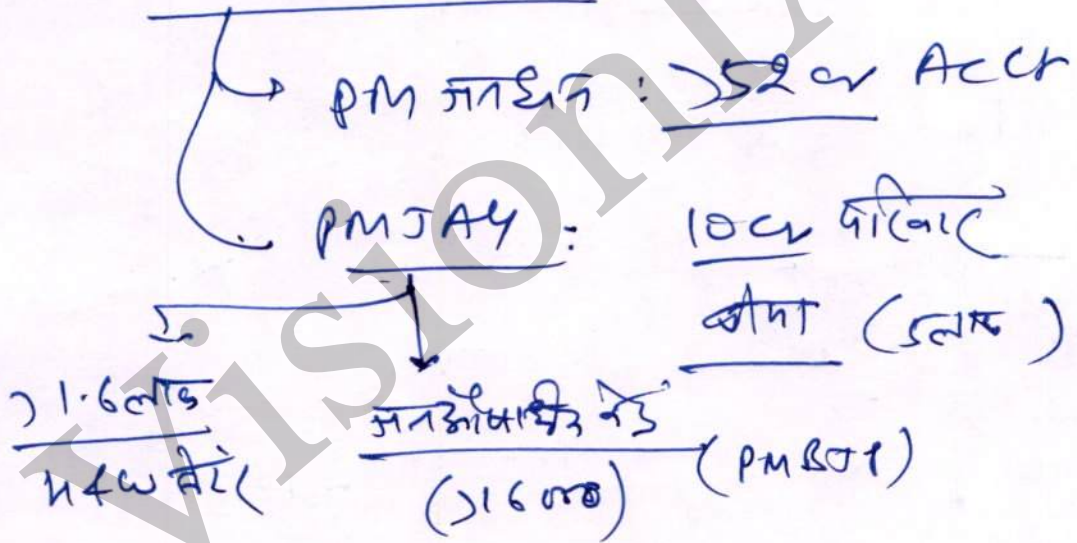 PM जनधन : >52 cr Acct
PMJAY : 10 cr परिवार
बीमा (5लाख)
>1.6लाख
H&W सेंटर
जनऔषधि केंद्र
(>16000)
(PMBJP)
Vision